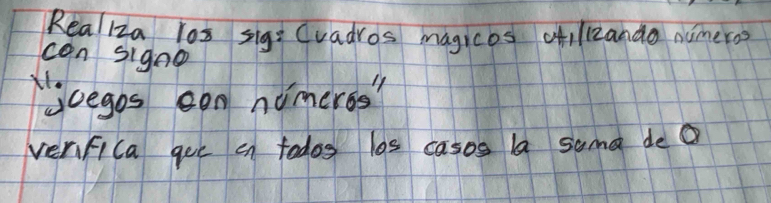 Realiza los sig: Cuadros magicos utilizando números
con signo
"juegos con números"
verifica que en todos los casos la suma de 0